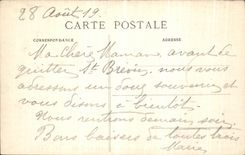 28 Août 19.
CARTE POSTALE
CORRESPONDANCE ADRESSE
Ma Chère Maman, avant de
quitter St Brévin, nous vous
adressons un doux souvenir et
vous disons à bientôt.
Nous rentrons demain soir.
Bons baisers de toutes trois
Marie